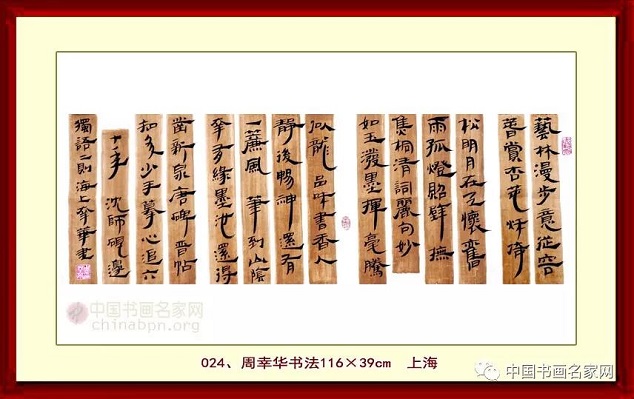 藝林漫步意從容
賞杏花
松明月在 懷舊
雨孤燈照 撫
焦桐清詞麗句妙
如玉潑墨揮毫騰
似龍 品味書香人
靜後暢神還有
一簾風 筆到山陰
多緣墨池還得
鑿新泉唐碑晉帖
知多少手摹心追六
十年 沈師硯邊
獨語二則海上幸華書
中国书画名家网
chinabpn.org
024、周幸华书法116×39cm 上海
中国书画名家网